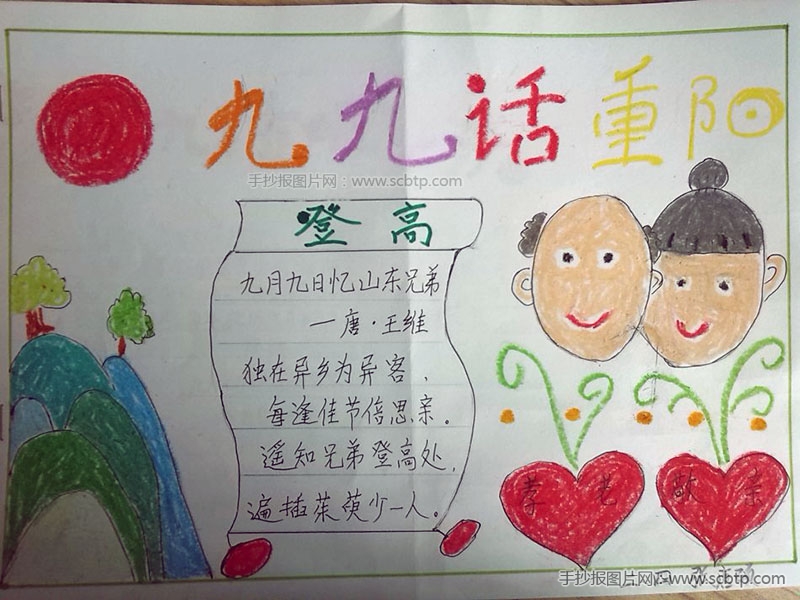 九九话重阳
手抄报图片网：www.scbtp.com
登高
九月九日忆山东兄弟
—唐·王维
独在异乡为异客，
每逢佳节倍思亲。
遥知兄弟登高处，
遍插茱萸少一人。
孝老敬亲
手抄报图片网：www.scbtp.com